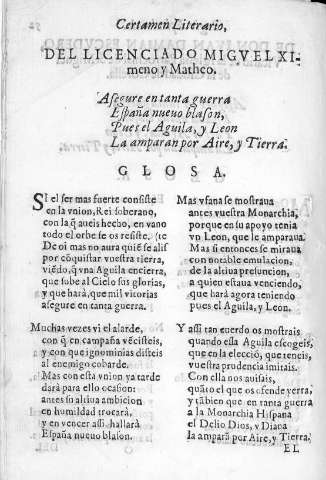 Certamen Literario,
DEL LICENCIADO MIGVEL XI-
meno y Matheo.
Asegure en tanta guerra
España nueuo blason,
Pues el Aguila, y Leon
La amparan por Aire, y Tierra.
GLOSA.
SI el ser mas fuerte consiste
en la vnion, Rei soberano,
con la q̃ aueis hecho, en vano
todo el orbe se os resiste. (te
De oi mas no aura quiẽ se alis
por cõquistar vuestra tierra,
viẽdo, q̃ vna Aguila encierra,
que sube al Cielo sus glorias,
y que hará, que mil vitorias
asegure en tanta guerra.
Muchas vezes vi el alarde,
con q̃ en campaña vẽcisteis,
y con que ignominias disteis
al enemigo cobarde.
Mas con esta vnion ya tarde
dará para ello ocasion:
antes su altiua ambicion
en humildad trocará,
y en vencer assi hallará
España nueuo blason.
Mas vfana se mostraua
antes vuestra Monarchia,
porque en su apoyo tenia
vn Leon, que le amparaua.
Mas si entonces se miraua
con notable emulacion,
de la altiua presuncion,
a quien estaua venciendo,
que hará agora teniendo
pues el Aguila, y Leon.
Y assi tan cuerdo os mostrais
quando essa Aguila escogeis,
que en la elecciõ, que teneis,
vuestra prudencia imitais.
Con ella nos auisais,
quãto el que os ofende yerra,
y tãbien que en tanta guerra
a la Monarchia Hispana
el Delio Dios, y Diana
la amparã por Aire, y Tierra.
EL